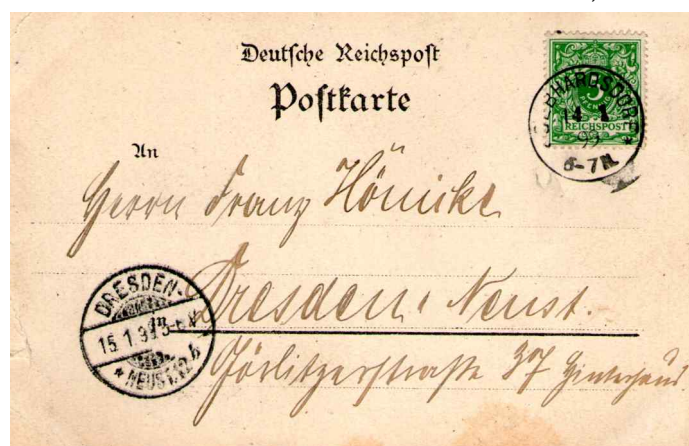 Deutsche Reichspost
Postkarte
5
REICHSPOST
GEBHARDSDORF *
14 1
99
6-7N.
An
Herrn Franz Hömicke
in Dresden-Neust.
Görlitzerstraße 37 Hinterhaus
DRESDEN-
15 1 99
* NEUST.